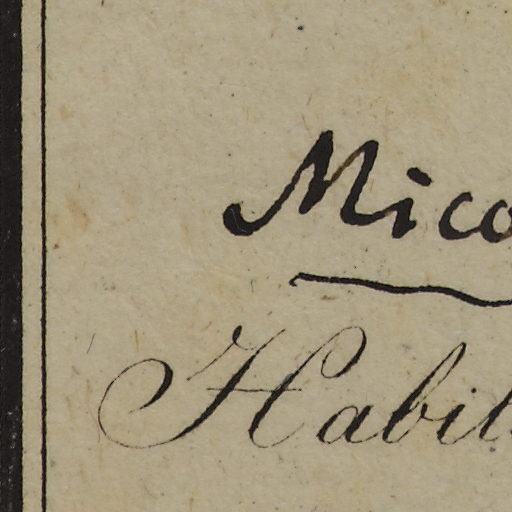 Mico
Habil